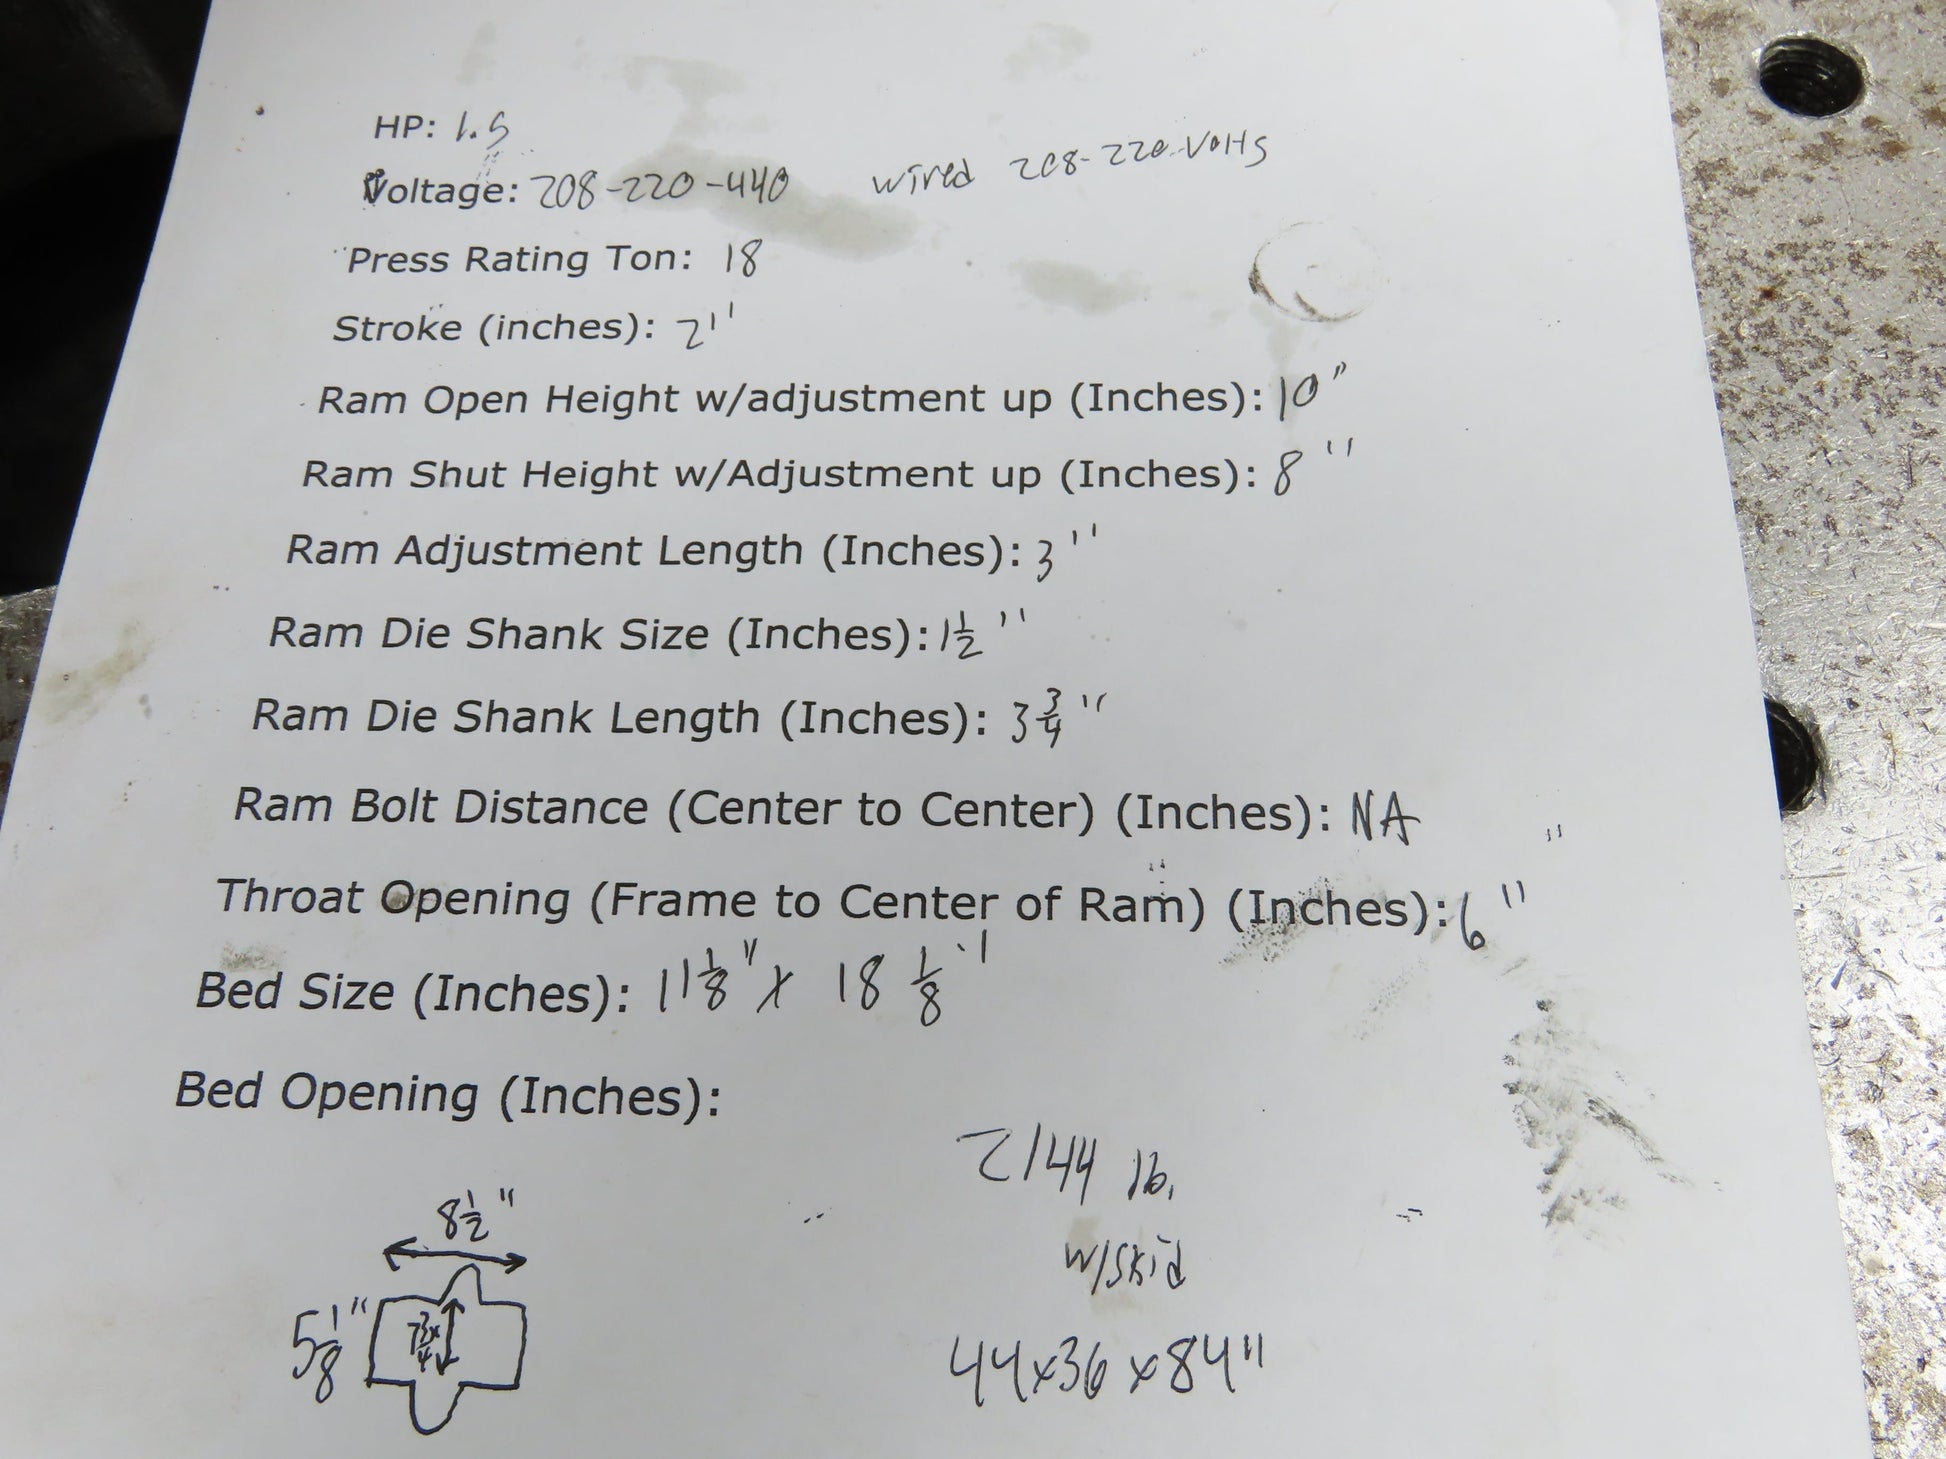 HP: 1.5
Voltage: 208-220-440 wired 208-220-volts
Press Rating Ton: 18
Stroke (inches): 2"
Ram Open Height w/adjustment up (Inches): 10"
Ram Shut Height w/Adjustment up (Inches): 8"
Ram Adjustment Length (Inches): 3"
Ram Die Shank Size (Inches): 1 1/2"
Ram Die Shank Length (Inches): 3 3/4"
Ram Bolt Distance (Center to Center) (Inches): NA
Throat Opening (Frame to Center of Ram) (Inches): 6"
Bed Size (Inches): 11 1/8" x 18 1/8"
Bed Opening (Inches):
2144 lb.
w/skid
8 1/2"
5 1/8"
7 3/4"
44x36x84"